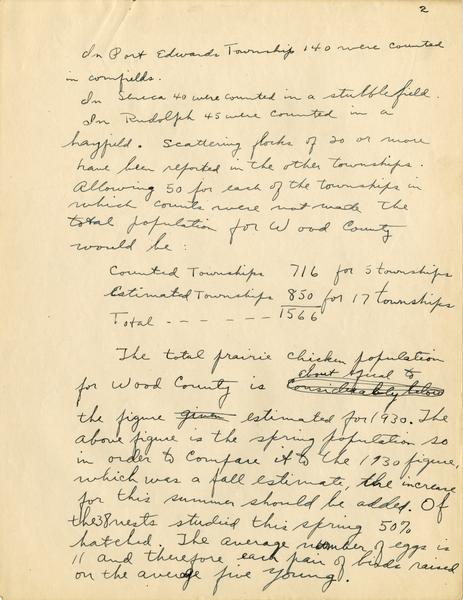 2
In Port Edwards Township 140 were counted
in cornfields.
In Seneca 40 were counted in a stubblefield.
In Rudolph 45 were counted in a
hayfield. Scattering flocks of 20 or more
have been reported in the other townships.
Allowing 50 for each of the townships in
which counts were not made the
total population for Wood County
would be:
Counted Townships 716 for 5 townships
Estimated Townships 850 for 17 townships
Total - - - - - - 1566
The total prairie chicken population
about equal to
for Wood County is considerably below
the figure given estimated for 1930. The
above figure is the spring population so
in order to compare it to the 1930 figure,
which was a fall estimate, the increase
for this summer should be added. Of
the 38 nests studied this spring 50%
hatched. The average number of eggs is
11 and therefore each pair of birds raised
on the average five young.